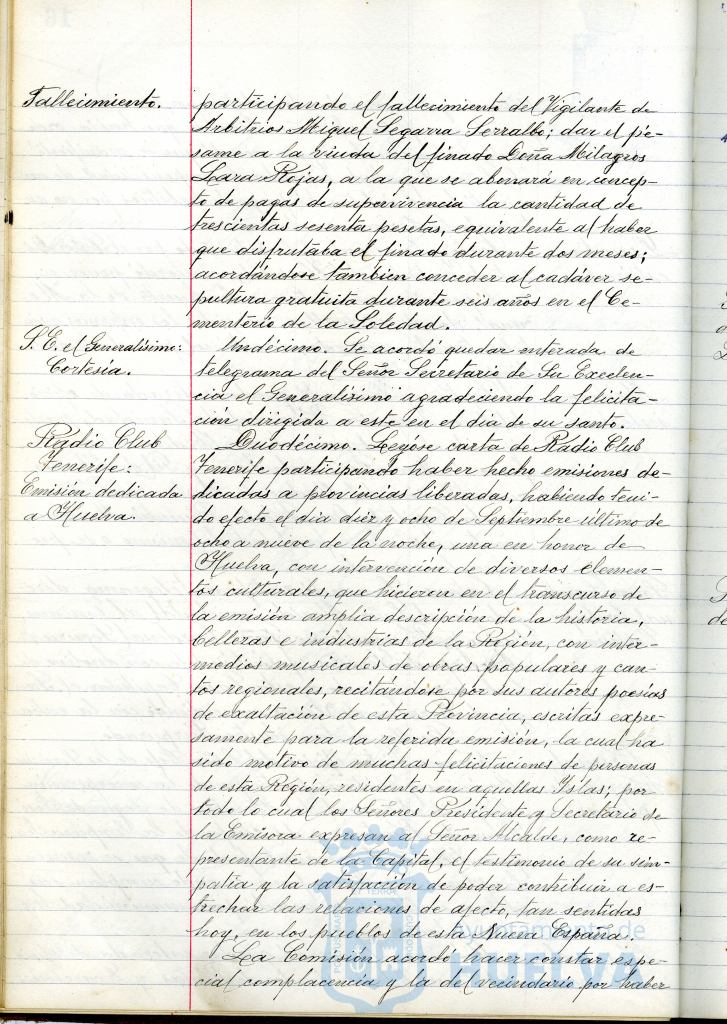 Fallecimiento.
participando el fallecimiento del Vigilante de
Arbitrios Miguel Segarra Serralbo; dar el pé-
same a la viuda del finado Doña Milagros
Lara Rojas, a la que se abonará en concep-
to de pagas de supervivencia la cantidad de
trescientas sesenta pesetas, equivalente al haber
que disfrutaba el finado durante dos meses;
acordándose tambien conceder al cadáver se-
pultura gratuita durante seis años en el Ce-
menterio de la Soledad.
S. E. el Generalísimo:
Cortesía.
Undécimo. Se acordó quedar enterada de
telegrama del Señor Secretario de Su Excelen-
cia el Generalísimo agradeciendo la felicita-
ción dirigida a este en el dia de su santo.
Radio Club
Tenerife:
Emisión dedicada
a Huelva.
Duodécimo. Leyóse carta de Radio Club
Tenerife participando haber hecho emisiones de-
dicadas a provincias liberadas, habiendo teni-
do efecto el dia diez y ocho de Septiembre último de
ocho a nueve de la noche, una en honor de
Huelva, con intervención de diversos elemen-
tos culturales, que hicieron en el transcurso de
la emisión amplia descripción de la historia,
bellezas e industrias de la Región, con inter-
medios musicales de obras populares y can-
tos regionales, recitándose por sus autores poesías
de exaltación de esta Provincia, escritas expre-
samente para la referida emisión, la cual ha
sido motivo de muchas felicitaciones de personas
de esta Región, residentes en aquellas Islas; por
todo lo cual los Señores Presidente y Secretario de
la Emisora expresan al Señor Alcalde, como re-
presentante de la Capital, el testimonio de su sim-
patía y la satisfacción de poder contribuir a es-
trechar las relaciones de afecto, tan sentidas
hoy, en los pueblos de esta Nueva España.
La Comisión acordó hacer constar espe-
cial complacencia y la del vecindario por haber
ayuntamiento de
HUELVA